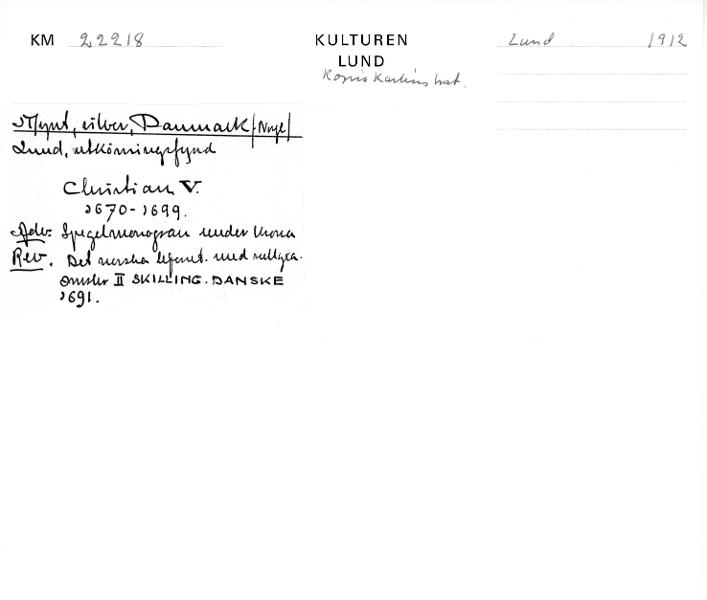 KM 22218
KULTUREN
LUND
Lund 1912
Kopia Karlins kat.
Mynt, silver, Danmark /Norge/
Lund, utkörningsfynd
Christian V.
1670-1699.
Adv. Spegelmonogram under krona
Rev. Det norska lejonet. med
Omskr II SKILLING. DANSKE
1691.